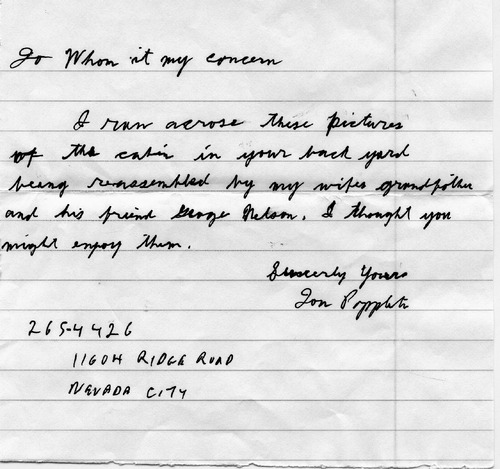 To Whom it my concern
I run across these pictures
of the cabin in your back yard
being reassembled by my wifes grandfather
and his friend George Nelson. I thought you
might enjoy them.
Sincerely Yours
265-4426
11604 RIDGE ROAD
NEVADA CITY